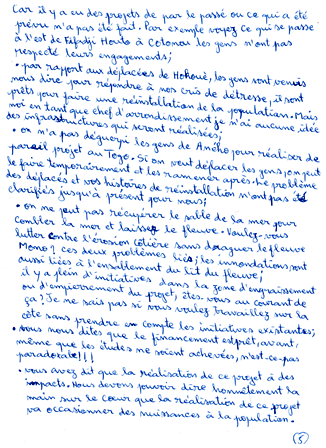 Car il y a eu des projets de par le passé ou ce qui a été
prévu n'a pas été fait. Par exemple voyez ce qui se passe
à l'est de Hoats à Cotonou les gens n'ont pas
respecté leurs engagements;
• par rapport aux déplacées de Hokouè, les gens sont venus
nous dire pour répondre à nos cris de détresse, ils sont
prêts pour faire une réinstallation de la population. Mais
moi en tant que chef d'arrondissement je n'ai aucune idée
des infrastructures qui seront réalisées;
• on n'a pas déguerpi les gens de Aného pour réaliser de
pareil projet au Togo. Si on veut déplacer les gens, on peut
le faire temporairement et les ramener après. Le problème
des déplacés et vos histoires de réinstallation n'ont pas été
clarifiés jusqu'à présent pour nous;
• on ne peut pas récupérer le sable de la mer pour
combler la mer et laisser le fleuve. Voulez-vous
lutter contre l'érosion côtière sans draguer le fleuve
Mono? ces deux problèmes liés; les innondations sont
aussi liées à l'ensablement du lit du fleuve;
• il y a plein d'initiatives dans la zone d'engraissement
ou d'empierrement du projet, êtes-vous au courant de
ça? Je ne sais pas si vous voulez travailler sur la
côte sans prendre en compte les initiatives existantes;
• vous nous dites que le financement est prêt, avant,
même que les études ne soient achevées, n'est-ce-pas
paradoxale!!!
• vous avez dit que la réalisation de ce projet à des
impacts. Nous devons pouvoir dire honnêtement la
main sur le cœur que la réalisation de ce projet
va occasionner des nuisances à la population.
(5)